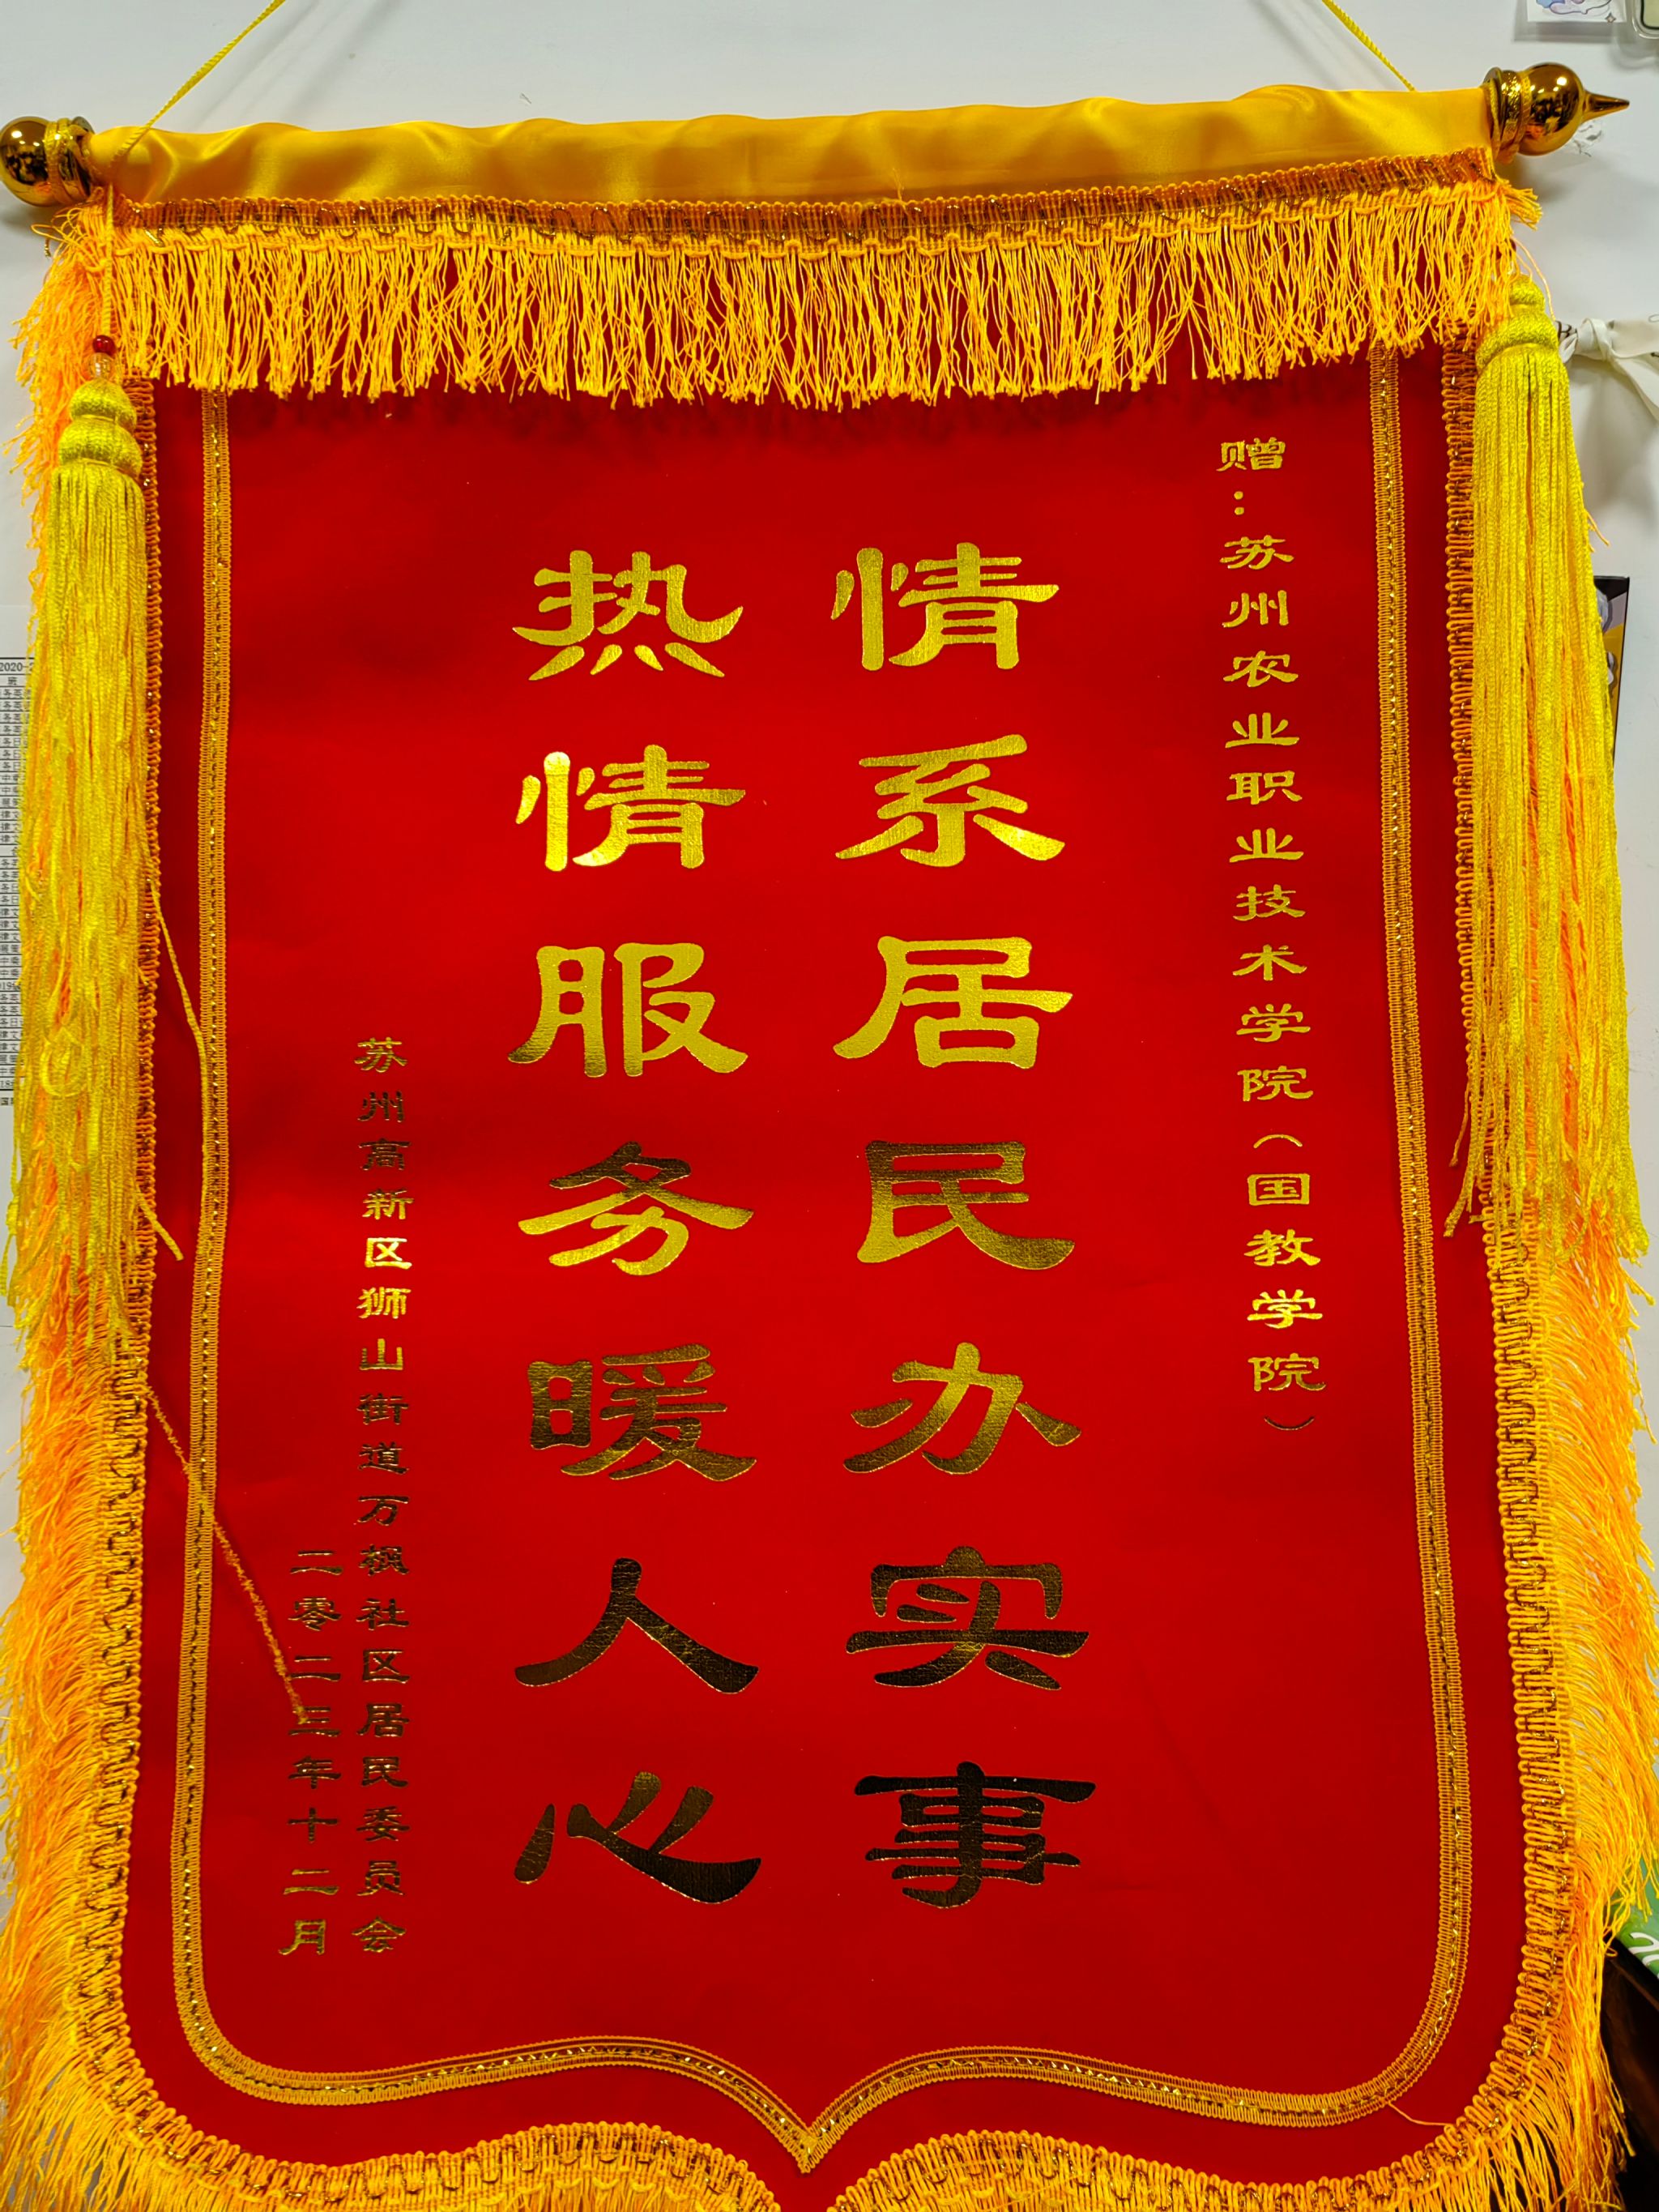 赠：苏州农业职业技术学院（国教学院）
情系居民办实事
热情服务暖人心
苏州高新区狮山街道万枫社区居民委员会
二零二三年十二月